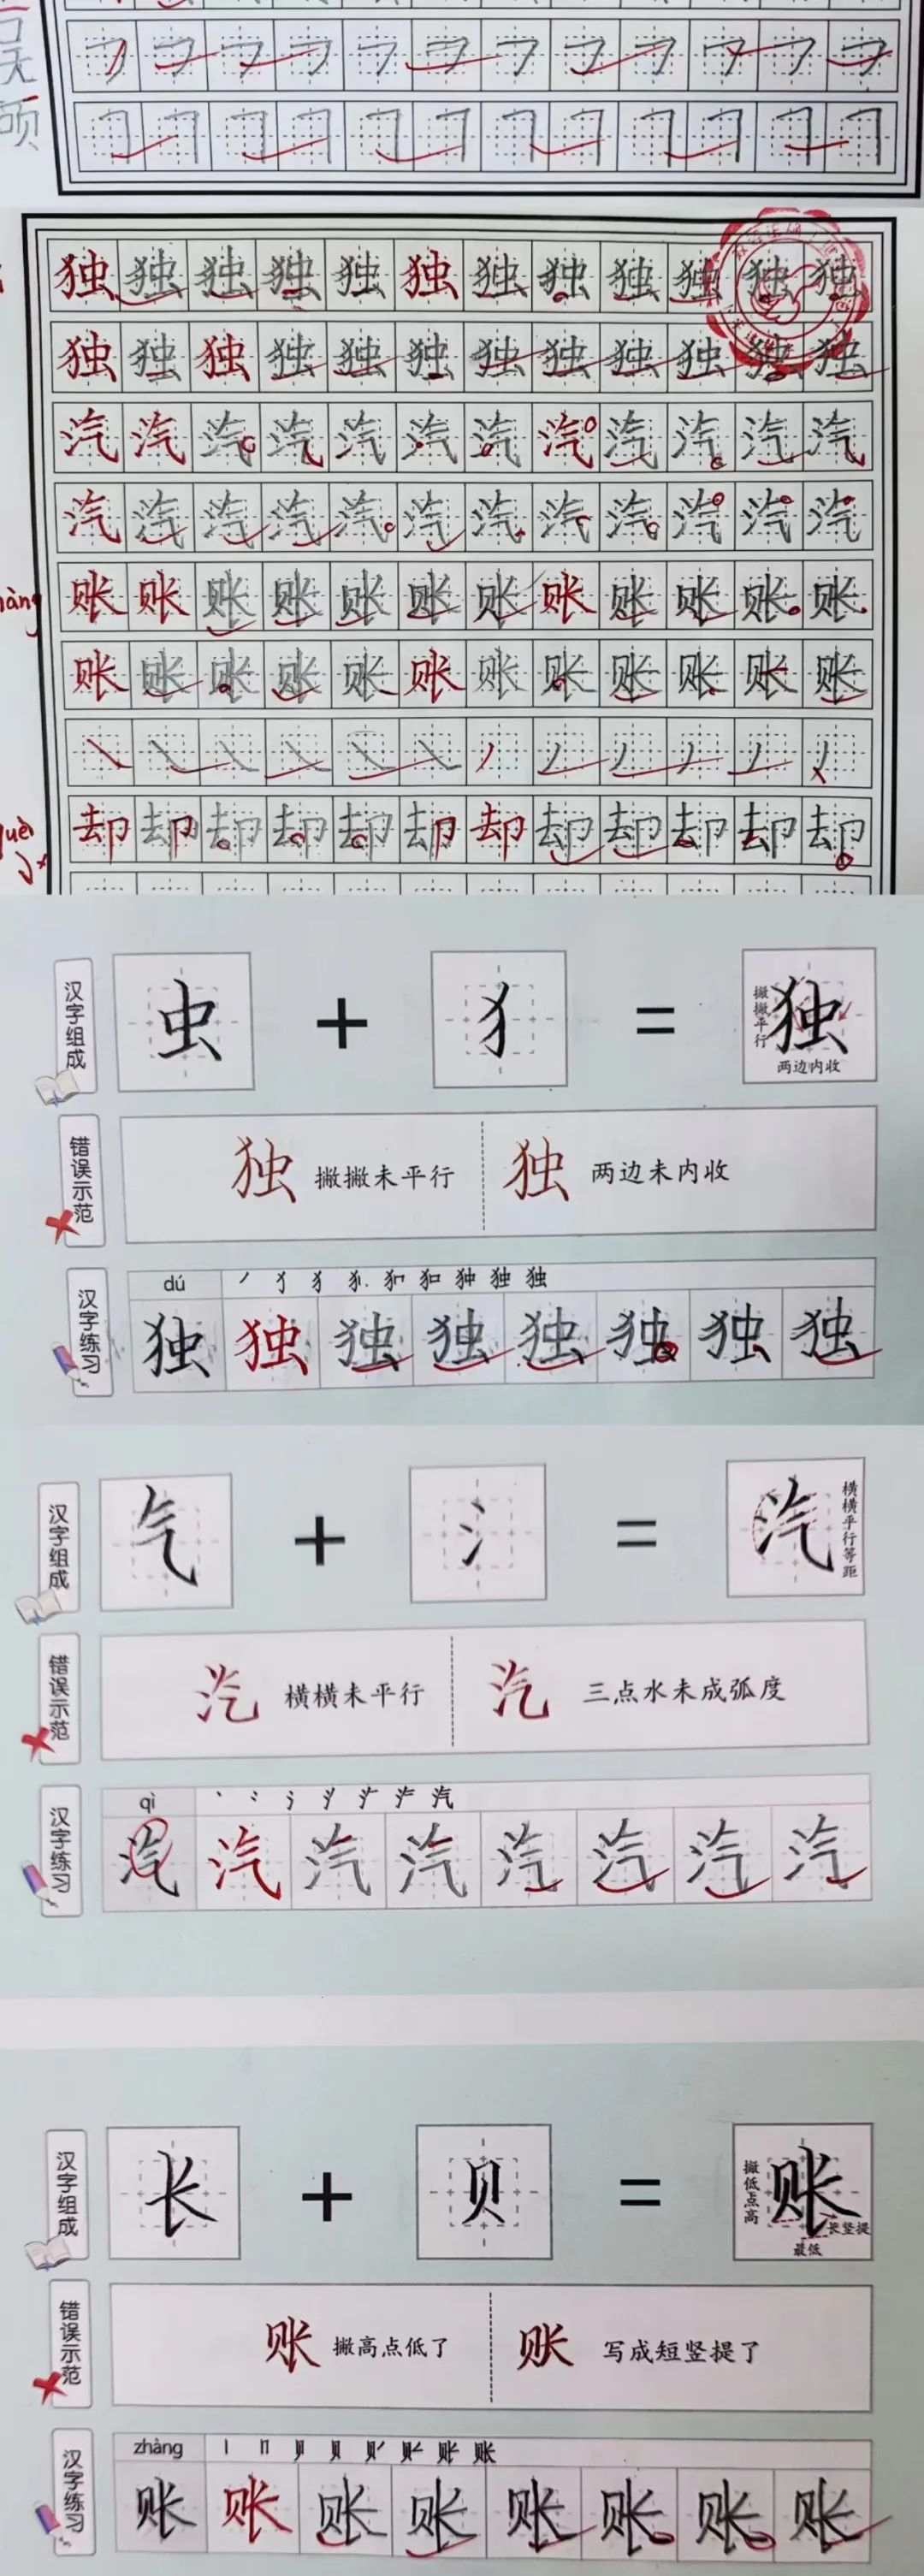 独独独独独独独独独独独独
独独独独独独独独独独独独
汽汽汽汽汽汽汽汽汽汽汽汽
汽汽汽汽汽汽汽汽汽汽汽汽
账账账账账账账账账账账账
账账账账账账账账账账账账
却却却却却却却却却却却却
汉字组成
虫 + 犭 = 独
撇撇平行
两边内收
错误示范
独 撇撇未平行
独 两边未内收
汉字练习
dú
独独独独独独独独
汉字组成
气 + 氵 = 汽
横横平行等距
错误示范
汽 横横未平行
汽 三点水未成弧度
汉字练习
qì
汽汽汽汽汽汽汽汽
汉字组成
长 + 贝 = 账
撇低点高
长竖提
最低
错误示范
账 撇高点低了
账 写成短竖提了
汉字练习
zhàng
账账账账账账账账